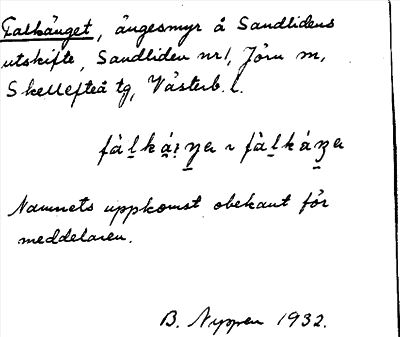 Falkänget, ängesmyr å Sandlidens
utskifte, Sandliden nr 1, Jörn sn,
Skellefteå tg, Västerb. l.
Namnets uppkomst obekant för
meddelaren.
B. Nyppen 1932.